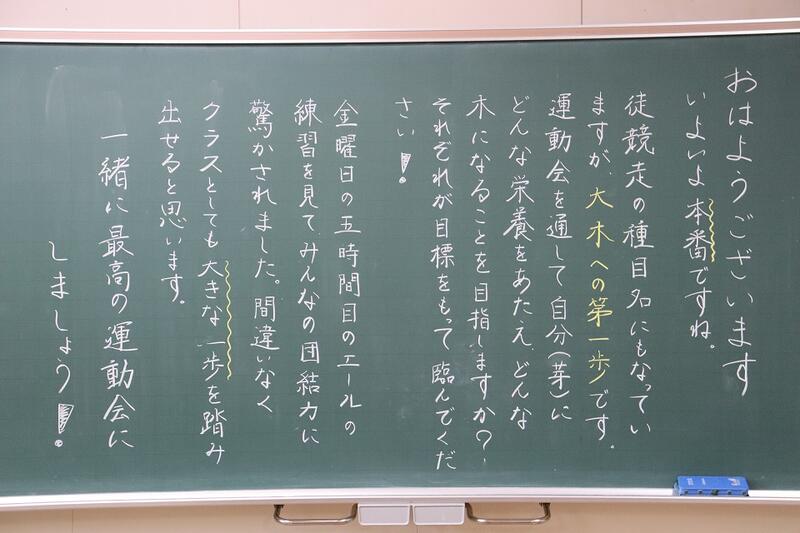 おはようございます
いよいよ本番ですね。
徒競走の種目名にもなってい
ますが、大木への第一歩です。
運動会を通して自分(芽)に
どんな栄養をあたえ、どんな
木になることを目指しますか?
それぞれが目標をもって臨んでくだ
さい!
金曜日の五時間目のエールの
練習を見てみんなの団結力に
驚かされました。間違いなく
クラスとしても大きな一歩を踏み
出せると思います。
一緒に最高の運動会に
しましょう!